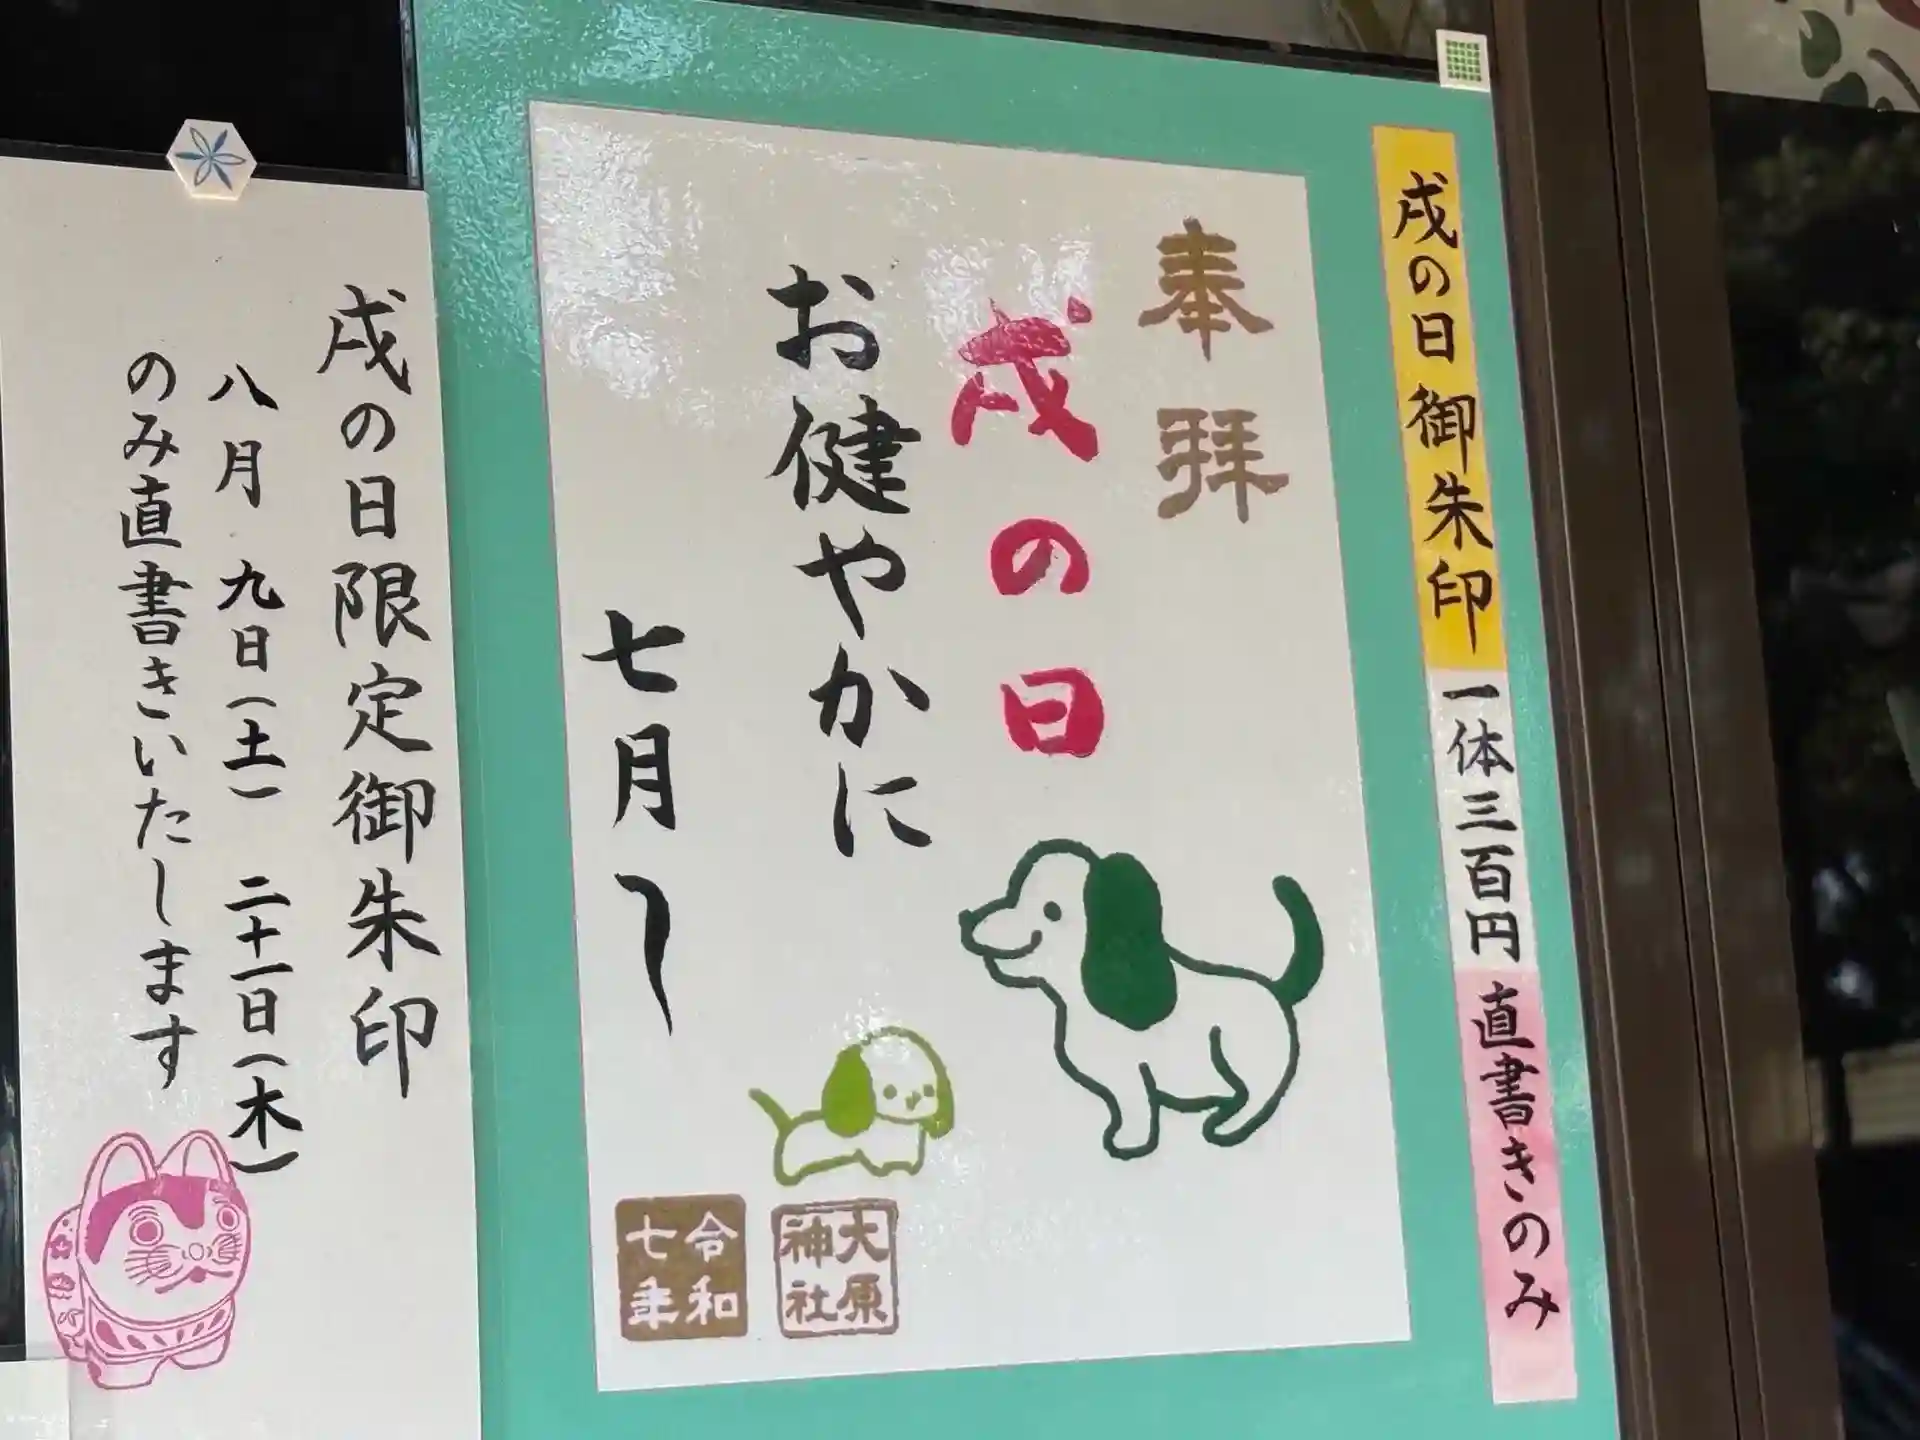 戌の日御朱印 一体三百円 直書きのみ
奉拝
戌の日
お健やかに
七月〜
大原神社
令和七年
戌の日限定御朱印
八月 九日(土) 二十一日(木)
のみ直書きいたします